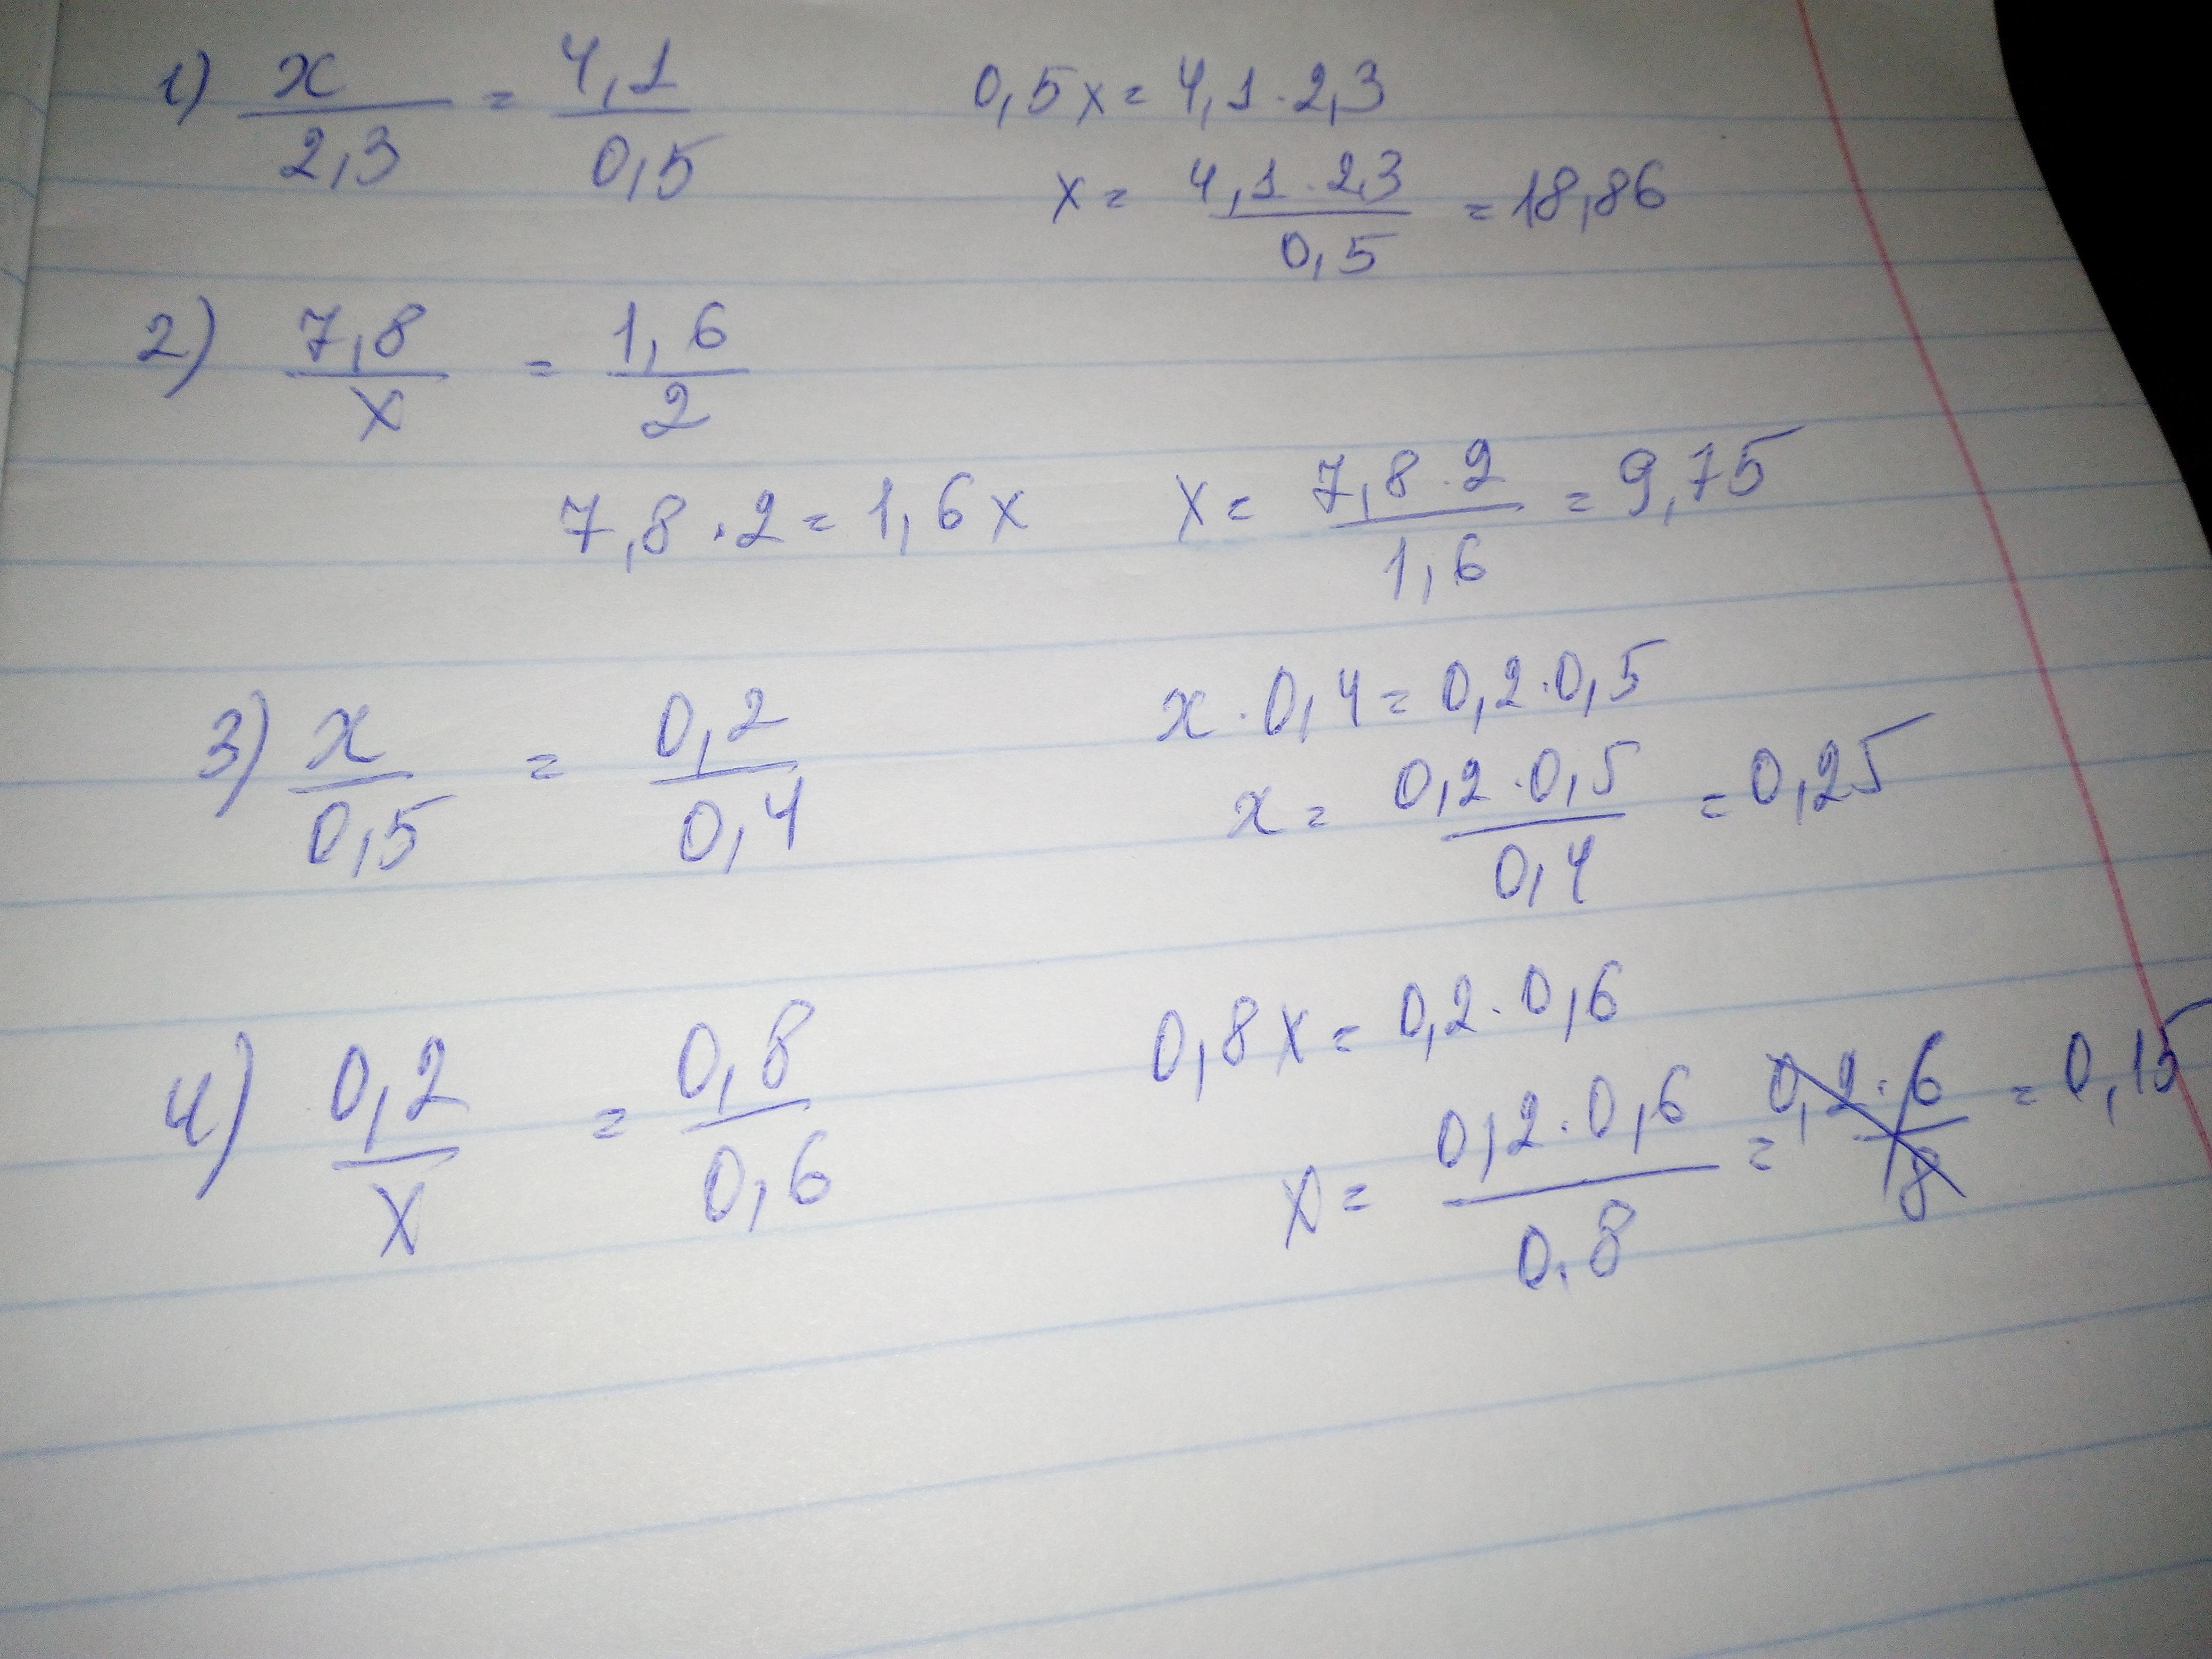 1) x/2,3 = 4,1/0,5
0,5x = 4,1 · 2,3
x = 4,1 · 2,3/0,5 = 18,86
2) 7,8/x = 1,6/2
7,8 · 2 = 1,6x
x = 7,8 · 2/1,6 = 9,75
3) x/0,5 = 0,2/0,4
x · 0,4 = 0,2 · 0,5
x = 0,2 · 0,5/0,4 = 0,25
4) 0,2/x = 0,8/0,6
0,8x = 0,2 · 0,6
x = 0,2 · 0,6/0.8 = 0,2 · 6/8 = 0,15